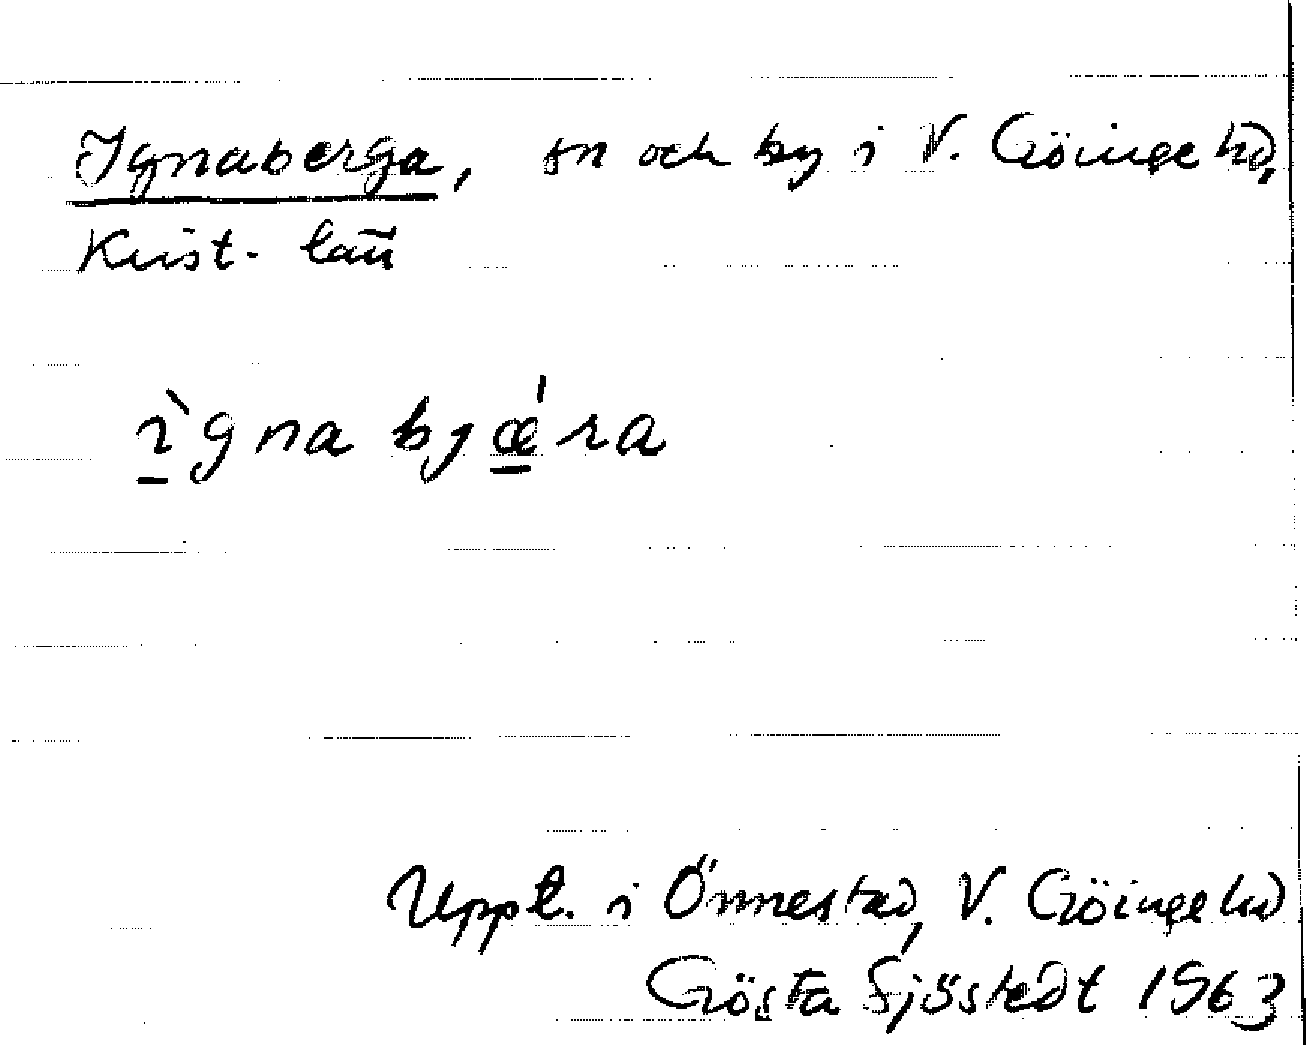 Ignaberga, sn och by i V. Göinge hd,
Krist. län
ı̱̀gna bjǽ̱ra
Uppt. i Önnestad, V. Göinge hd
Gösta Sjöstedt 1963